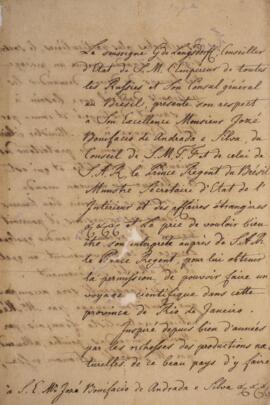 Le soussigné G de Langsdorff, Conseiller
d'Etat de S. M. l'Empereur de toutes
les Russies et Son Consul général
au Brésil, présente son respect
à Son Excellence Monsieur José
Bonifacio de Andrada e Silva, du
Conseil de S. M. T. F. et de celui de
S. A. R. le Prince Regent du Brésil
Ministre Sécrétaire d'Etat de l'
Interieur et des affaires étrangères
et La prie de vouloir bien
être son interprete auprès de S. A. R.
le Prince Regent, pour lui obtenir
la permission, de pouvoir faire un
voyage scientifique dans cette
province de Rio de Janeiro.
depuis bien d'années
par les richesses des productions na-
turelles de ce beau pays d'y faire
à S. E. Mr José Bonifacio de Andrada e Silva